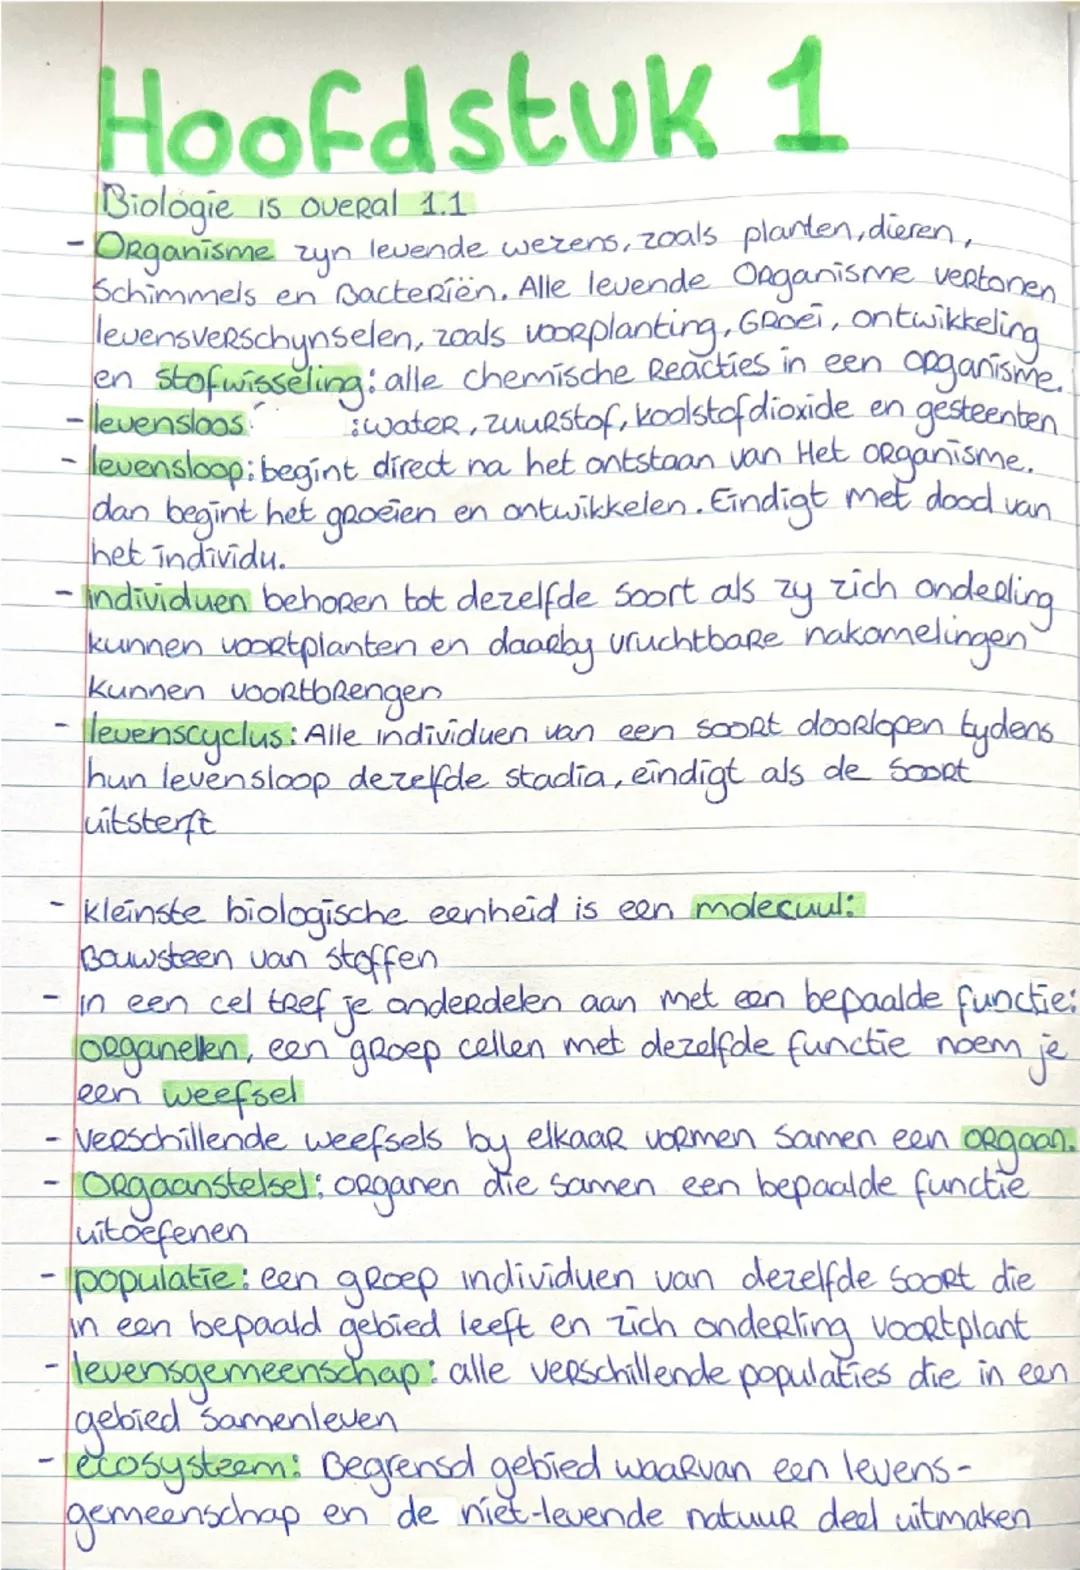 Hoofdstuk 1
Biologie is overal 1.1
- Organisme zyn levende wezens, zoals planten, dieren,
Schimmels en Bacteriën. Alle levende Organisme vertonen
levensverschynselen, zoals voorplanting, Groei, ontwikkeling
en stofwisseling: alle chemische Reacties in een organisme.
- levensloos: :water, zuurstof, koolstofdioxide en gesteenten
- levensloop: begint direct na het ontstaan van Het organisme.
dan begint het groeien en ontwikkelen. Eindigt met dood van
het individu.
- individuen behoren tot dezelfde soort als zy zich onderling
kunnen voortplanten en daarby vruchtbare nakomelingen
kunnen voortbrengen
- levenscyclus: Alle individuen van een soort doorlopen tydens
hun levensloop dezelfde stadia, eindigt als de soort
uitsterft
- kleinste biologische eenheid is een molecuul:
Bouwsteen van stoffen
- in een cel tref je onderdelen aan met een bepaalde functie:
organellen, een groep cellen met dezelfde functie noem je
een weefsel
- verschillende weefsels by elkaar vormen samen een orgaan.
- Orgaanstelsel: organen die samen een bepaalde functie
uitoefenen
- populatie: een groep individuen van dezelfde soort die
in een bepaald gebied leeft en zich onderling voortplant
- levensgemeenschap: alle verschillende populaties die in een
gebied samenleven
- ecosysteem: Begrensd gebied waarvan een levens-
gemeenschap en de niet-levende natuur deel uitmaken